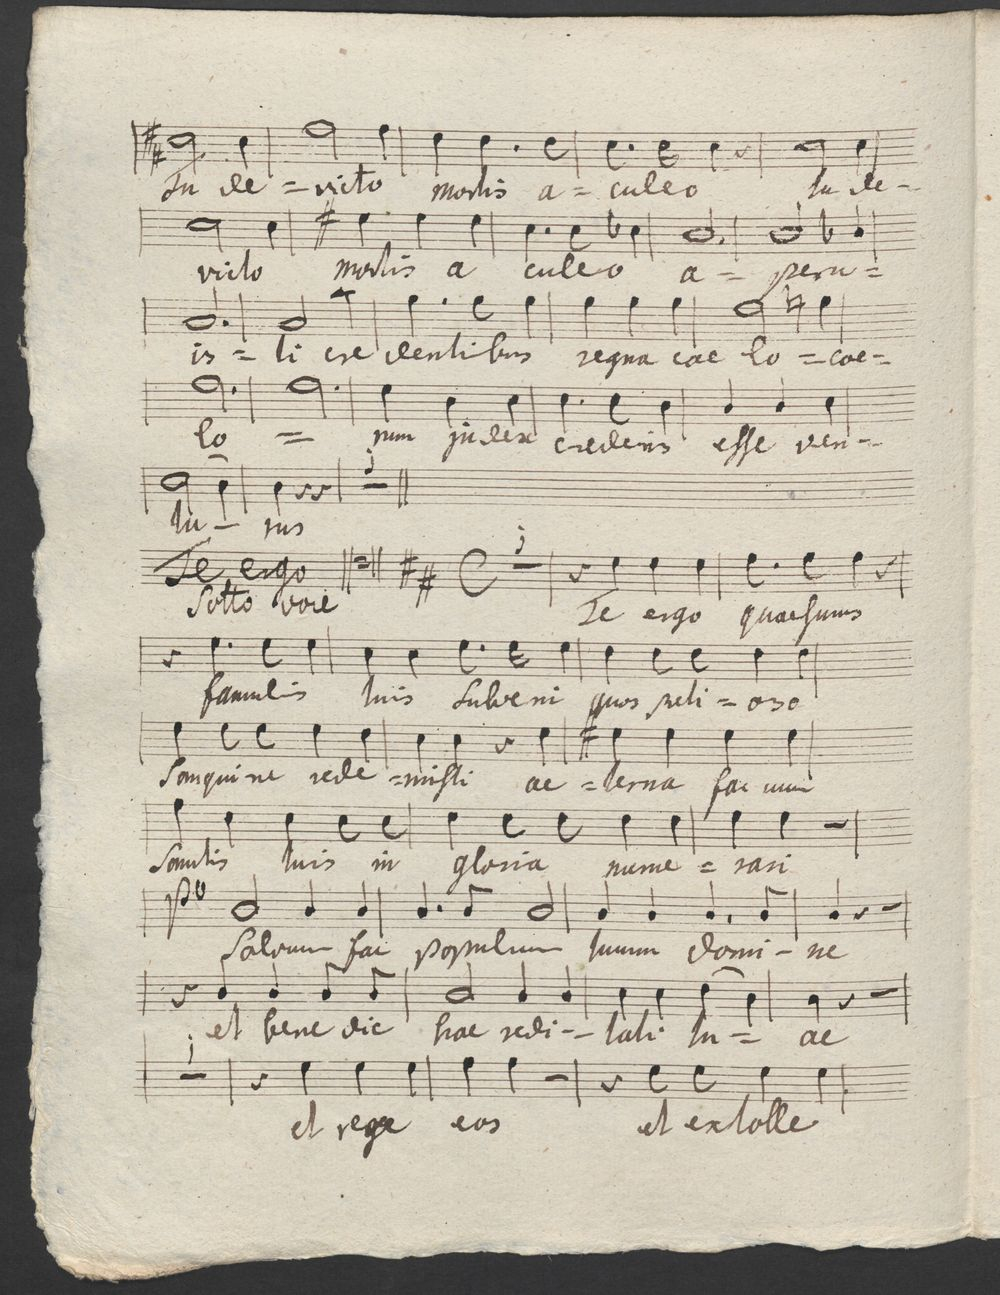 Tu de = victo mortis a = culeo tu de-
victo mortis a culeo a = peru =
is = ti cre dentibus regna cae lo = coe-
lo = rum judex crederis esse ven-
tu - rus
Te ergo
Sotto voce Te ergo quaesumus
famulis tuis subveni quos preti = oso
Sanguine rede = misti ae = terna fac cum
Sanctis tuis in gloria nume = rari
po
Salvum fac populum tuum domi - ne
et bene dic hae redi - tati tu = ae
et rege eos et extolle